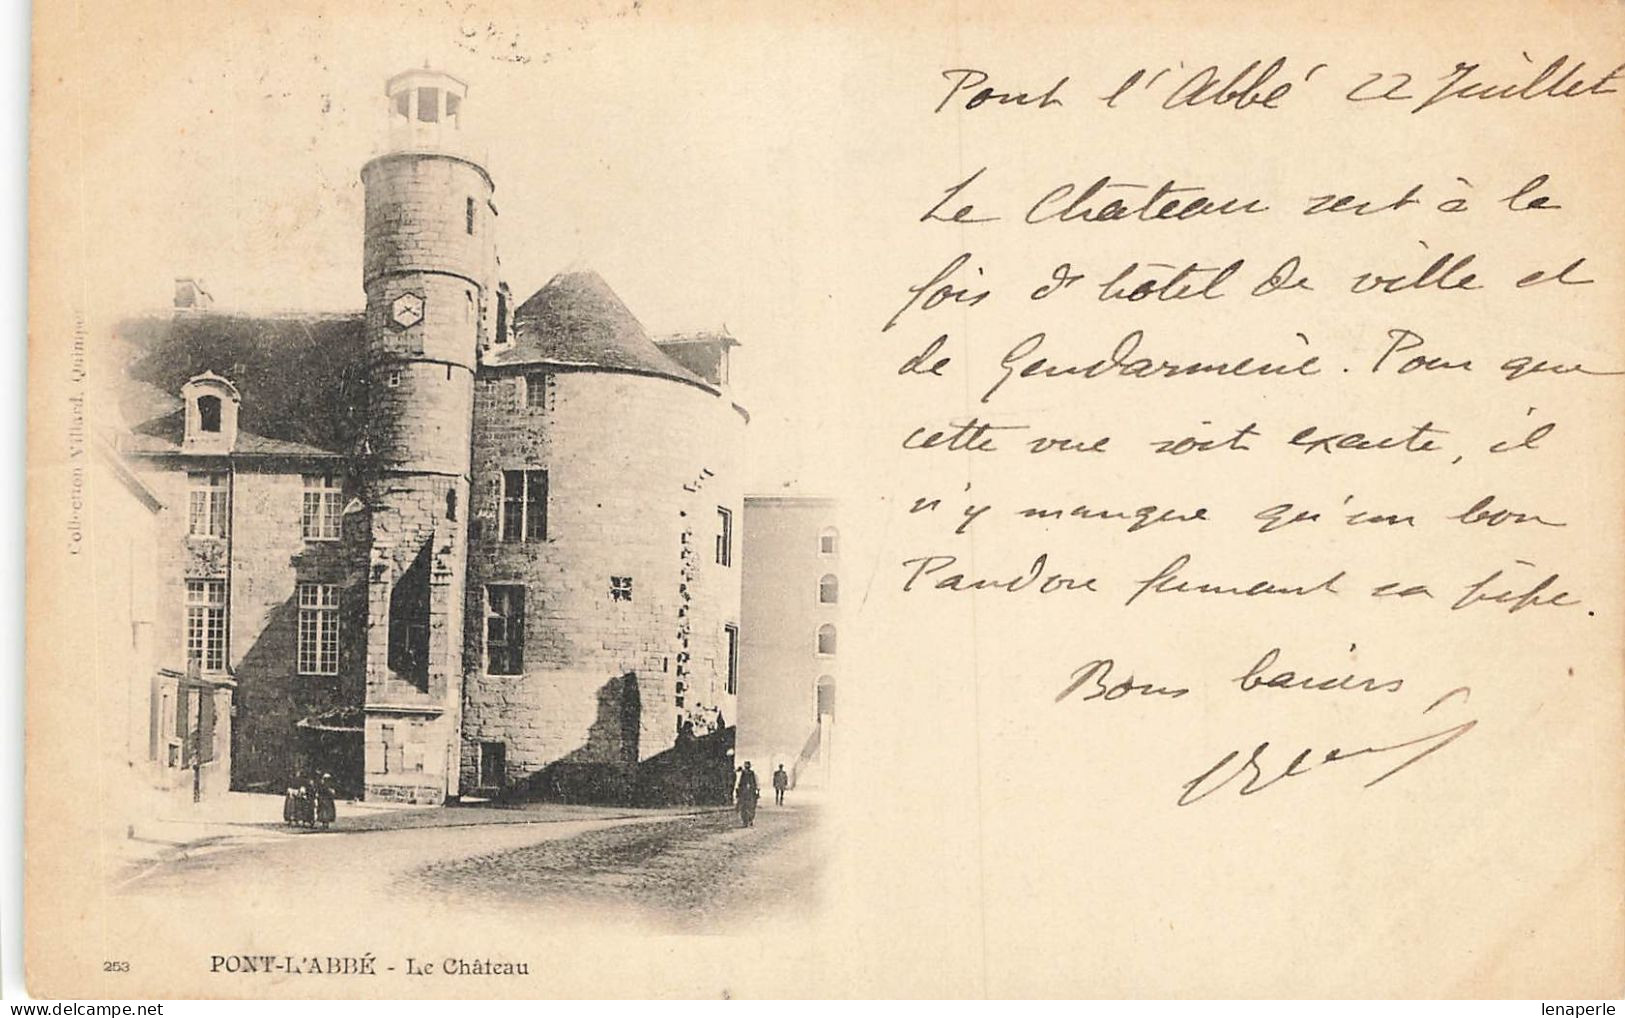 Pont l'Abbé 22 Juillet
Le Château sert à la
fois d'hôtel de ville et
de Gendarmerie. Pour que
cette vue soit exacte, il
n'y manque qu'un bon
Pandore fumant sa pipe.
Bons baisers
Collection Villard, Quimper
253 PONT-L'ABBÉ - Le Château
lenaperle